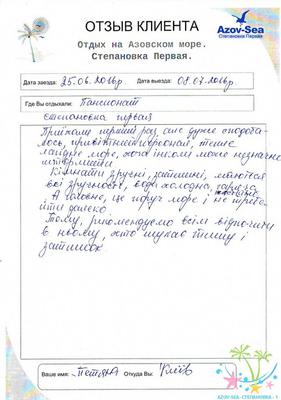 ОТЗЫВ КЛИЕНТА
Azov-Sea
Степановка Первая
Отдых на Азовском море.
Степановка Первая.
Дата заезда: 25.06.2016г Дата выезда: 08.07.2016г
Где Вы отдыхали: Пансионат
степановка первая
Приїхали перший раз, але дуже сподоба-
лось, привітний персонал, тепле
море, хоча інколи може незначно
Кімнати зручні, затишні, маються
всі зручності, вода холодна, гаряча
А головне, це поруч море і не треба
йти далеко.
Тому, рекомендуємо всім відпочити
в ньому, хто шукає тишу і
затишок.
Ваше имя: Тетяна Откуда Вы: Київ
AZOV-SEA-STEPANOVKA-1